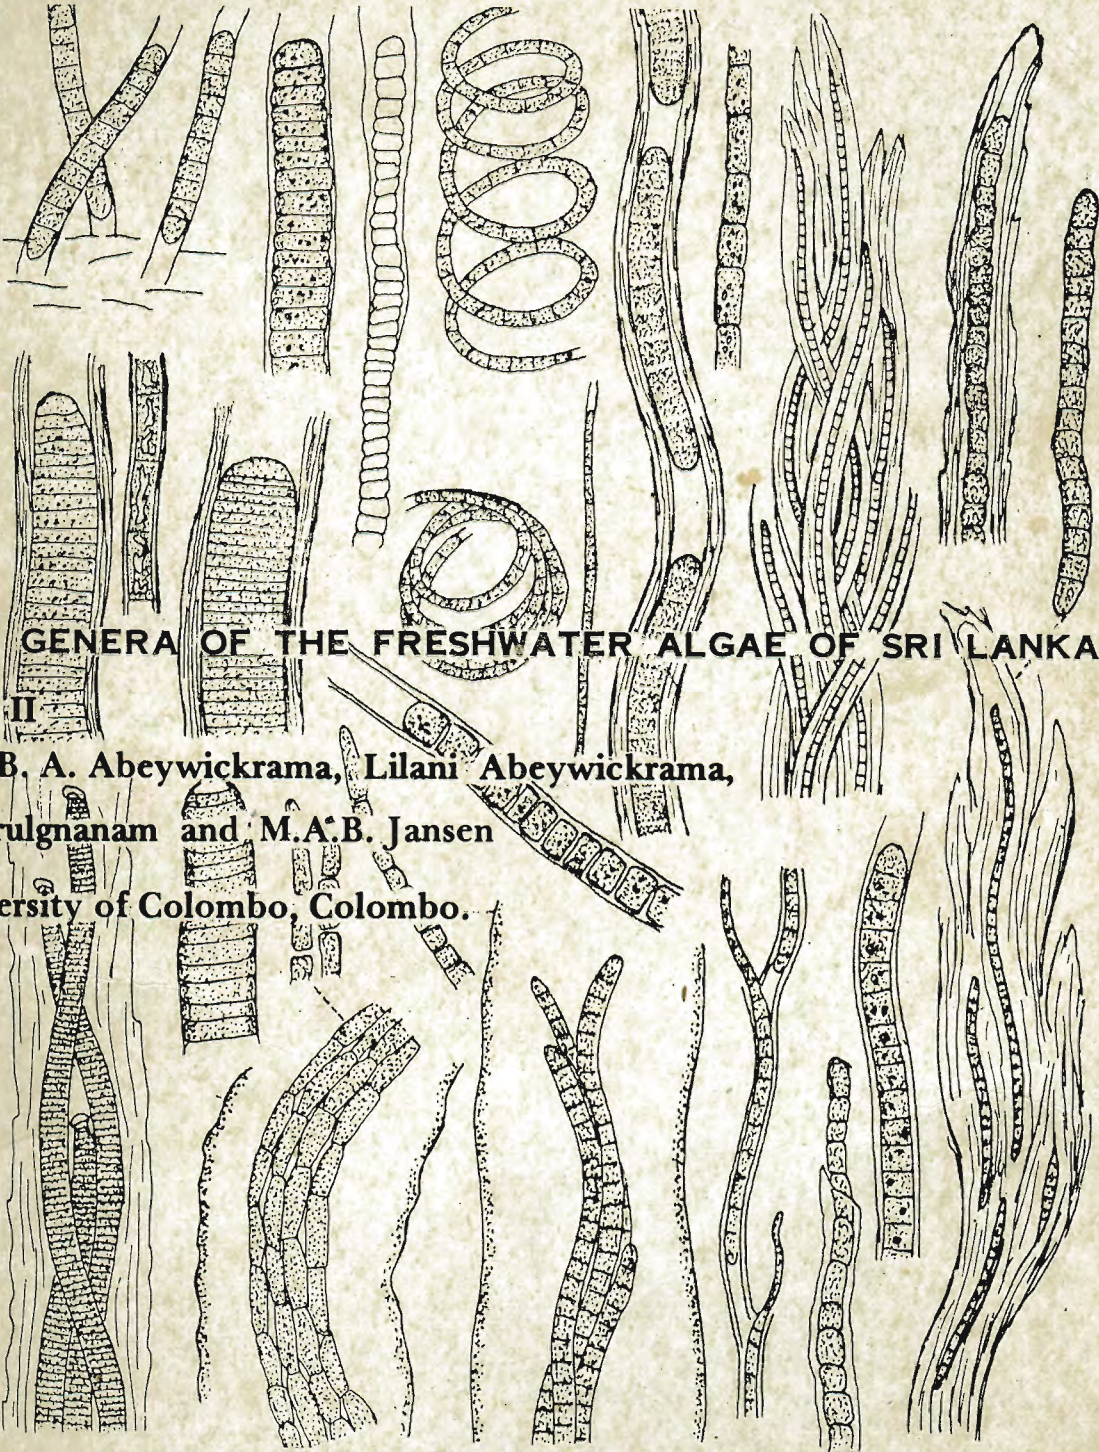 GENERA OF THE FRESHWATER ALGAE OF SRI LANKA
II
B. A. Abeywickrama, Lilani Abeywickrama,
rulgnanam and M.A.B. Jansen
ersity of Colombo, Colombo.